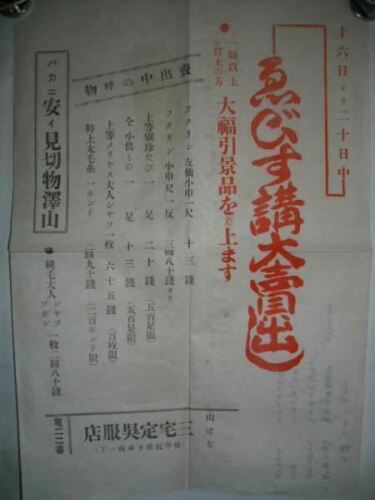 十六日ヨリ二十日中
ゑびす講大賣出し
一圓以上
お買上の方
大幅引景品を差上ます
賣出中の呼物
フクリン 友仙小巾一尺 十三錢
フクリン 小巾尺一反 三圓八十錢ヨリ
上等別珍たび 一足 二十錢 (五百足限)
仝小供もの 一足 十三錢 (五百足限)
上等メリヤス大人シャツ 一枚 六十五錢 (百枚限)
特上太毛糸 一ポンド 二圓九十錢 (二百ポンド限)
バカニ安イ見切物澤山
純毛大人 シャツ ヅボン 一枚二圓八十錢
山ばな
三宅定呉服店
電二二番